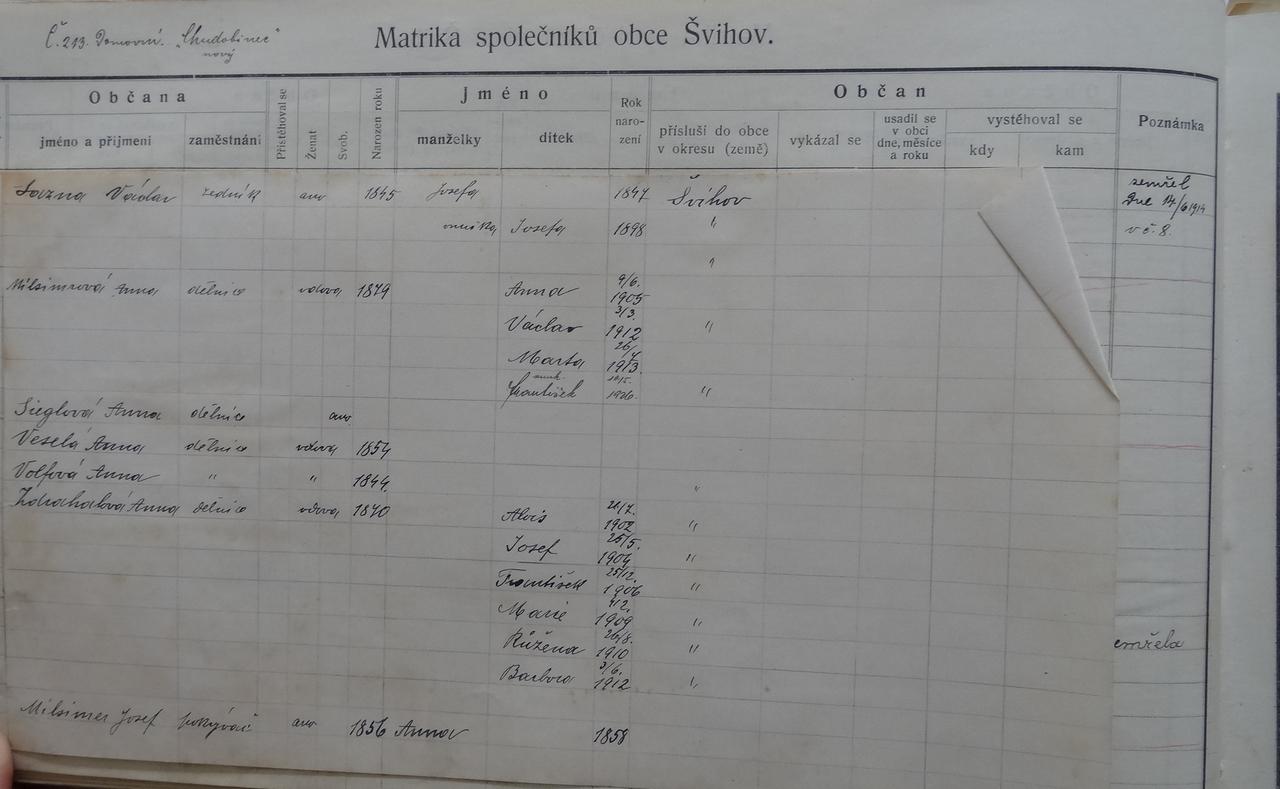 Č. 213. Domovní. „Chudobinec"
nový
Matrika společníků obce Švihov.
Občana Jméno Občan
jméno a přijmení zaměstnání Přistěhoval se Ženat Svob. Narozen roku manželky dítek Rok naro- zení přísluší do obce v okresu (země) vykázal se usadil se v obci dne, měsíce a roku vystěhoval se kdy kam Poznámka
Václav zedník ano 1845 Josefa 1847 Švihov zemřel
Dne 14/6 1914
Josefa 1898 " v č. 8.
"
Anna dělnice vdova 1879 Anna 9/6. 1905
Václav 3/3. 1912 "
Marta 26/ 1913.
František 1926. "
Sieglová Anna dělnice ano
Veselá Anna dělnice vdova 1854
Volfová Anna " " 1844. "
Zdrahalová Anna dělnice vdova 1870 Alois 1902 "
Josef 25/5. 1904 "
František 25/12. 1906 "
Marie 1909 "
Růžena 26/8. 1910 " emřela
Barbora 3/6. 1912 "
Milsimer Josef pokývač ano 1856 Anna 1858